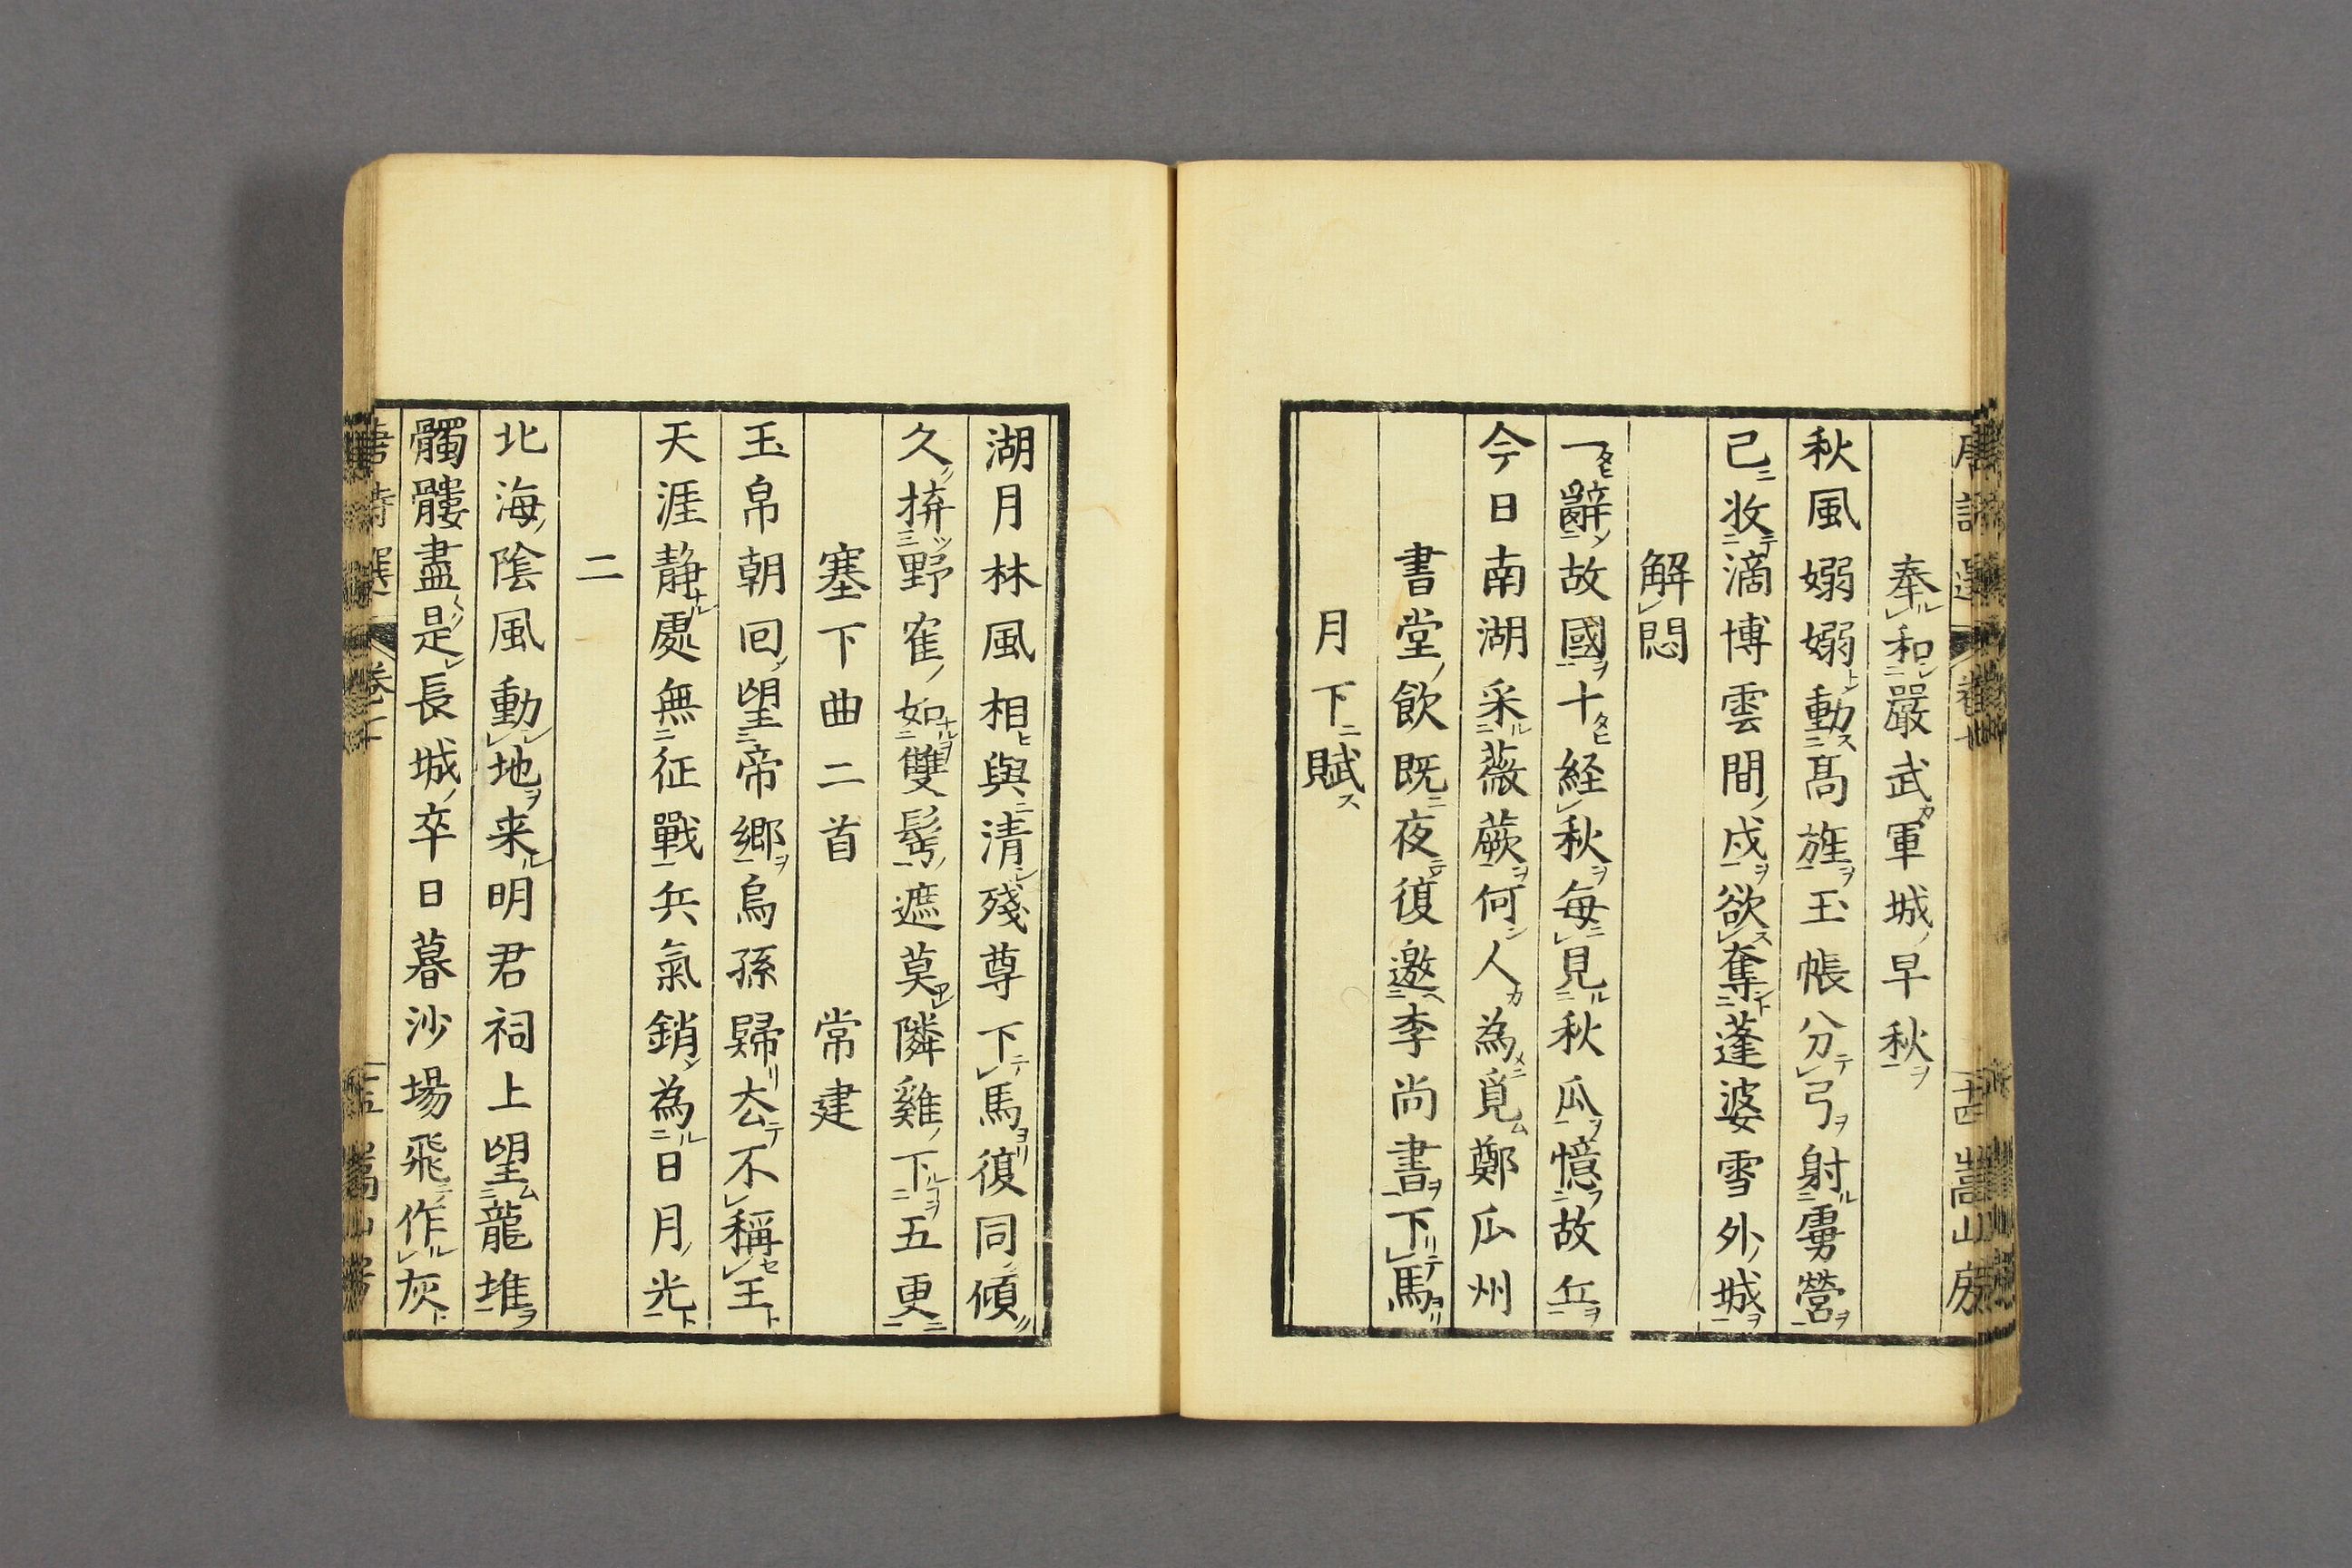 唐詩選 卷七 二十四 嵩山房
奉和嚴武軍城早秋
秋風嫋嫋動髙旌玉帳分弓射虜營
已收滴博雲間戍欲奪蓬婆雪外城
解悶
一辭故國十経秋毎見秋瓜憶故丘
今日南湖采薇蕨何人為覓鄭瓜州
書堂飲既夜復邀李尚書下馬
月下賦
湖月林風相與清殘尊下馬復同傾
久拚野雀如雙鬂遮莫隣雞下五更
塞下曲二首 常建
玉帛朝回望帝鄉烏孫歸去不稱王
天涯静處無征戰兵氣銷為日月光
二
北海陰風動地来明君祠上望龍堆
髑髏盡是長城卒日暮沙場飛作灰